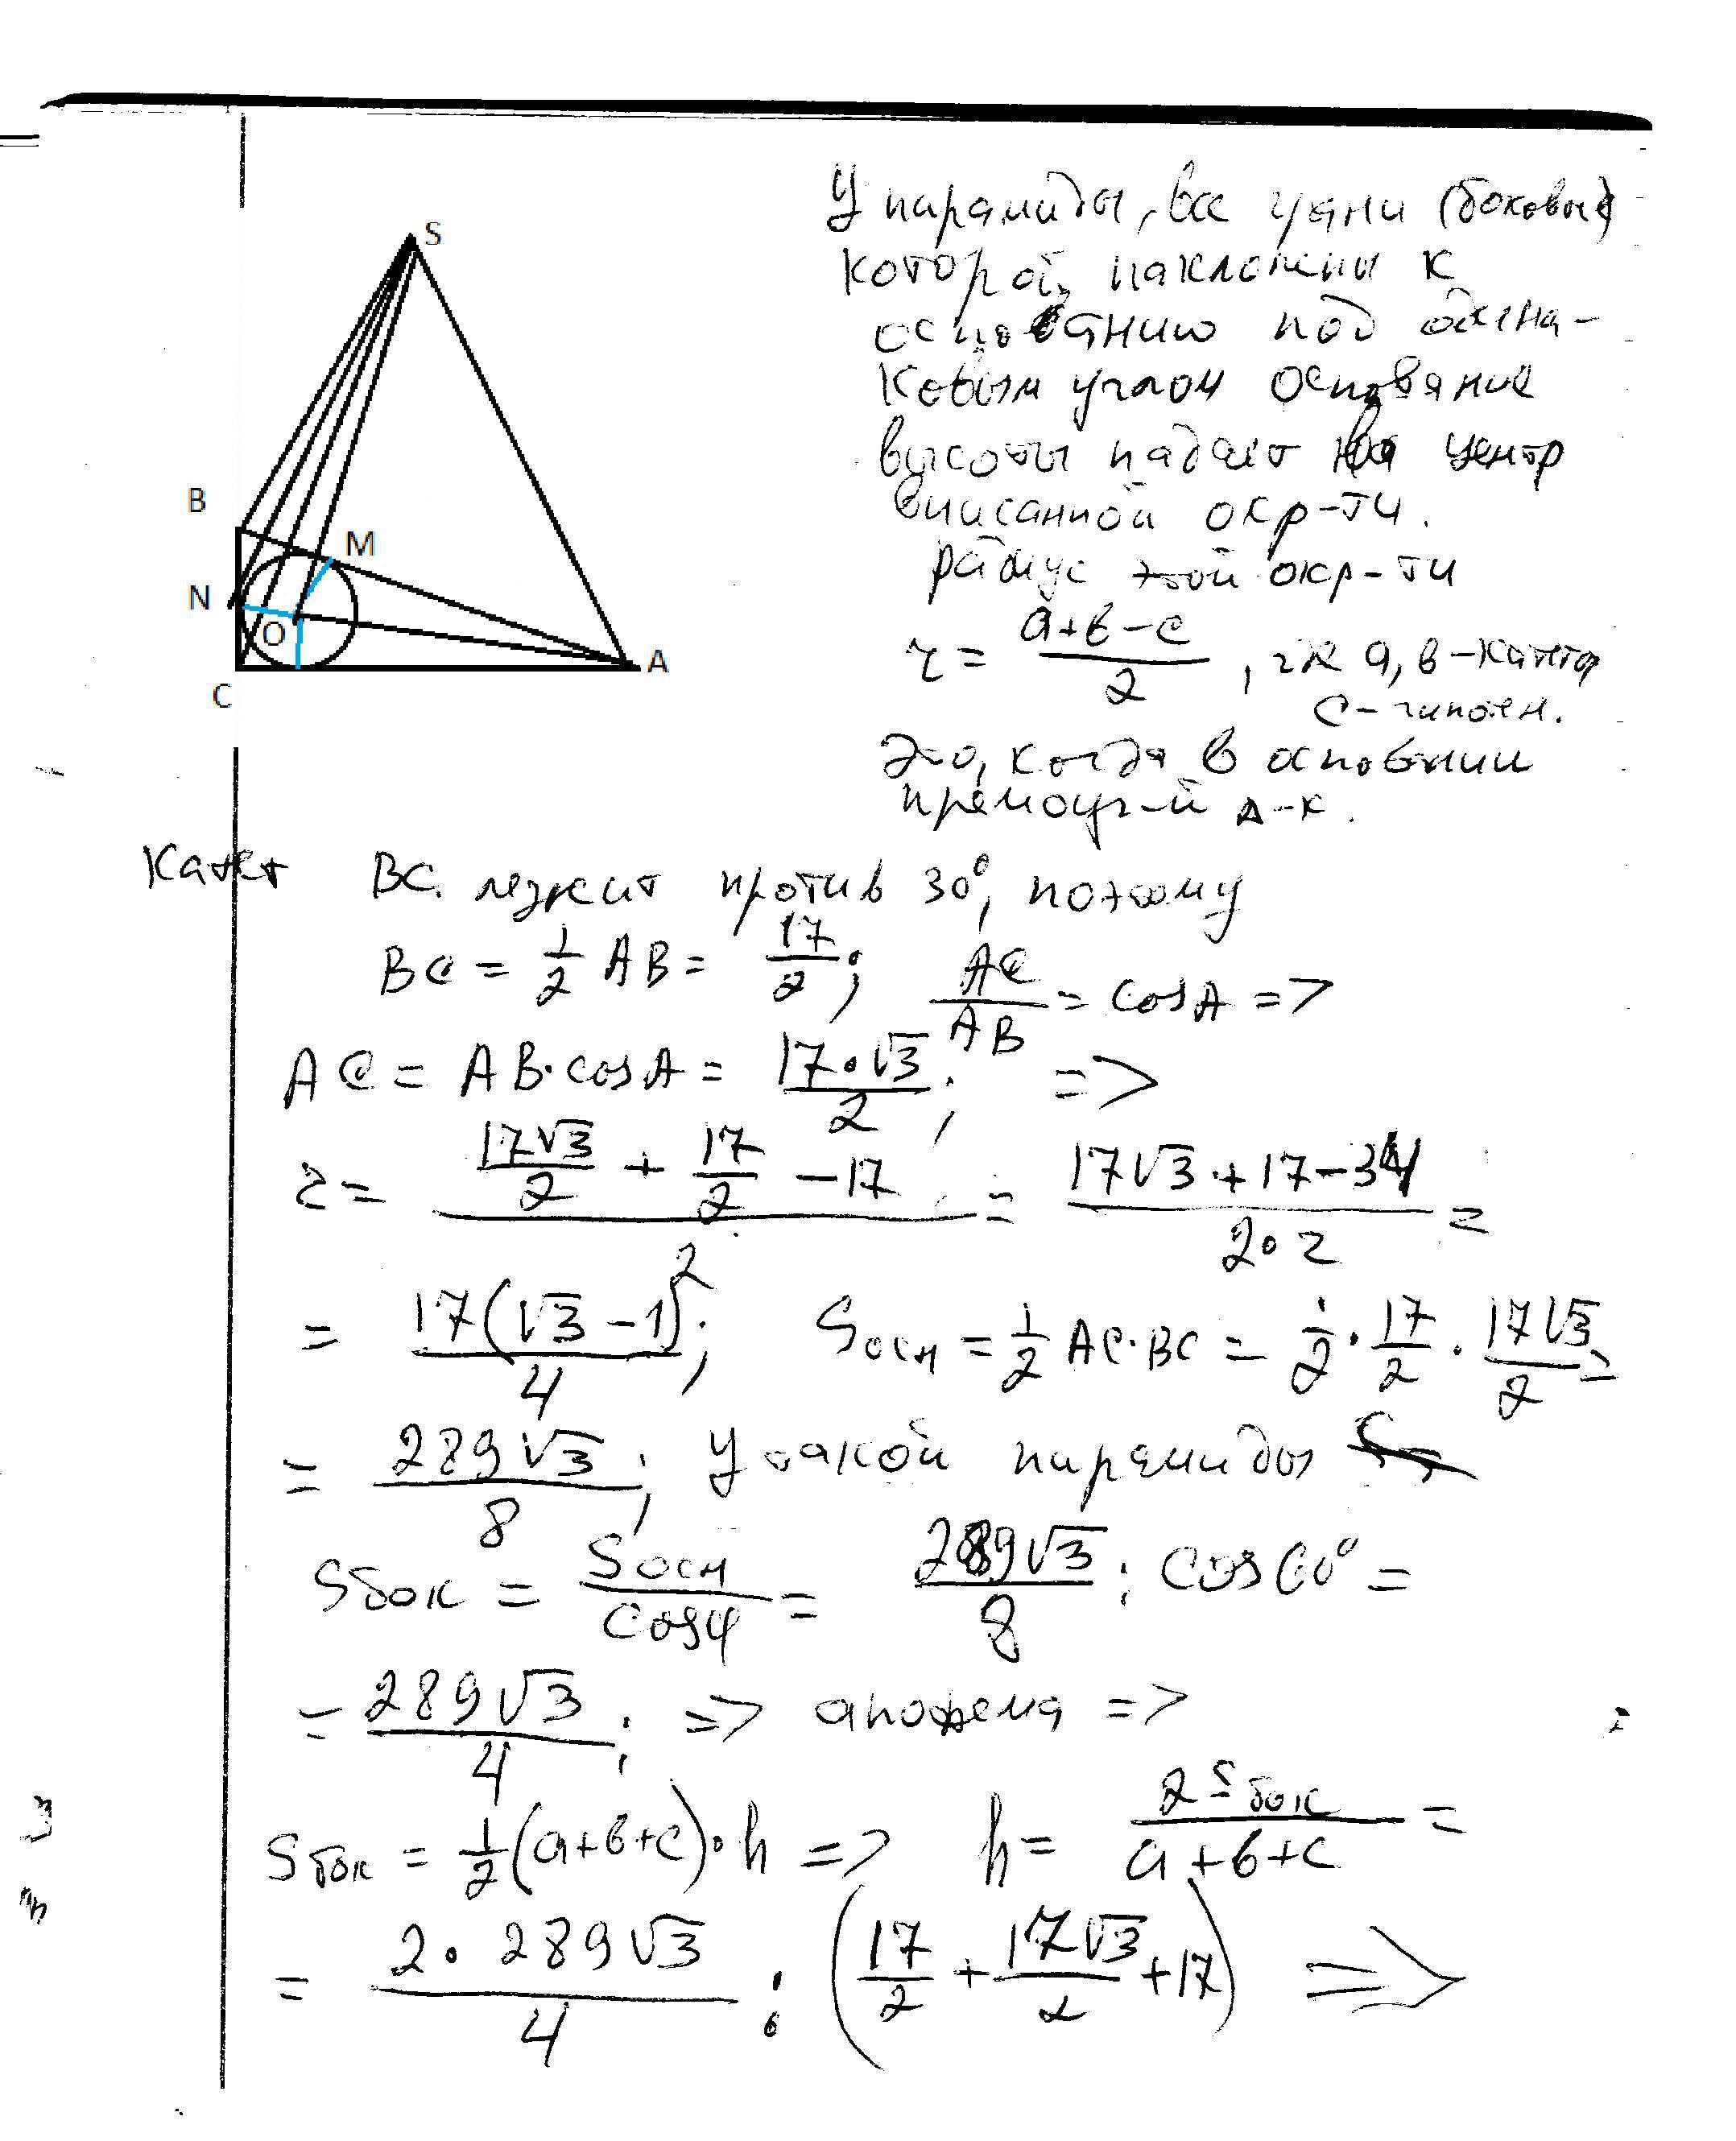 S
B
M
N
O
C
A
У пирамиды, все грани (боковые)
которой, наклонены к
основанию под одина-
ковым углом основание
высоты падает на центр
вписанной окр-ти.
радиус этой окр-ти
r = (a+b-c)/2, где a, в - катеты
c - гипотен.
Это, когда в основании
прямоуг-й Δ-к.
Катет BC лежит против 30°, поэтому
BC = 1/2 AB = 17/2; AC/AB = cosA =>
AC = AB·cosA = 17·√3/2; =>
r = (17√3/2 + 17/2 - 17)/2 = (17√3 + 17 - 34)/(2·2) =
= 17(√3 - 1)/4; Sосн = 1/2 AC·BC = 1/2 · 17/2 · 17√3/2 =
= 289√3/8; У такой пирамиды
Sбок = Sосн/cosφ = 289√3/8 : cos60° =
= 289√3/4; => апофема =>
Sбок = 1/2(a+b+c)·h => h = 2Sбок/(a+b+c) =
= 2·289√3/4 : (17/2 + 17√3/2 + 17) =>